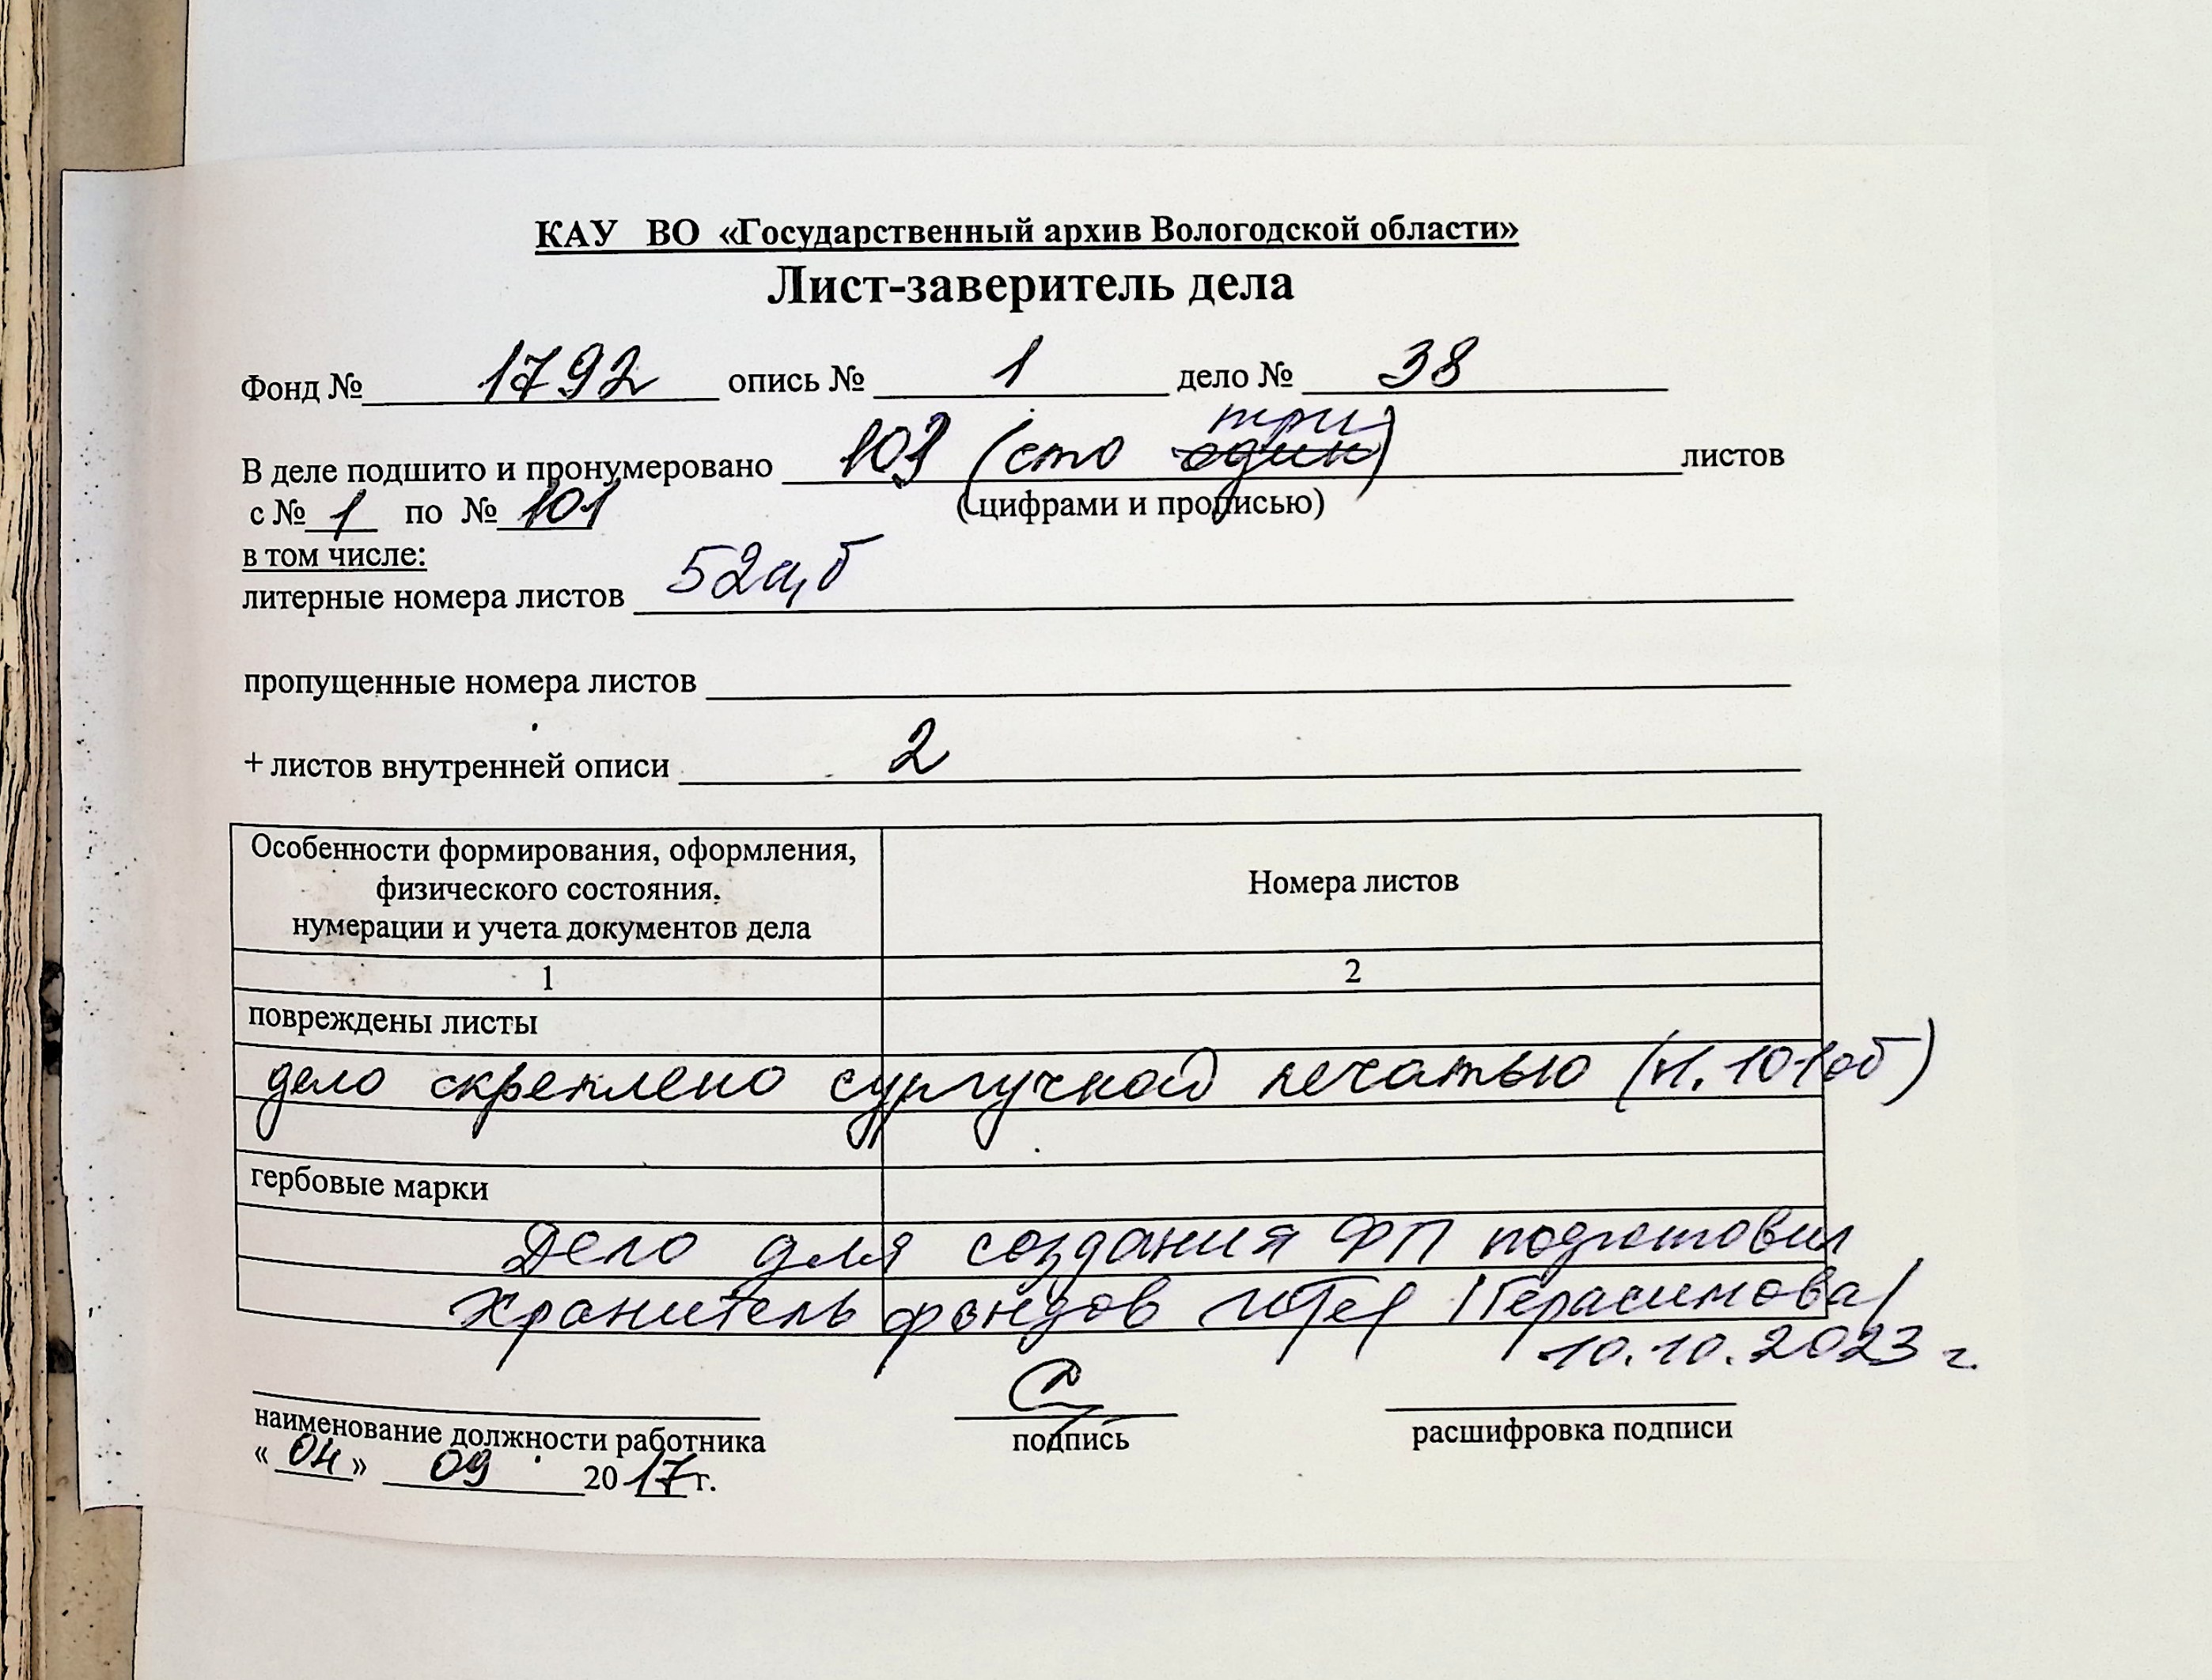 КАУ ВО «Государственный архив Вологодской области»
Лист-заверитель дела
Фонд № 1792 опись № 1 дело № 38
три
В деле подшито и пронумеровано 103 (сто один) листов
с № 1 по № 101 (цифрами и прописью)
в том числе:
литерные номера листов 52а,б
пропущенные номера листов
+ листов внутренней описи 2
Особенности формирования, оформления,
физического состояния,
нумерации и учета документов дела
Номера листов
1 2
повреждены листы
дело скреплено сургучной печатью (л. 101об)
гербовые марки
Дело для создания ФП подготовил
хранитель фондов /Герасимова/
10.10.2023 г.
наименование должности работника подпись расшифровка подписи
« 04 » 09 20 17 г.